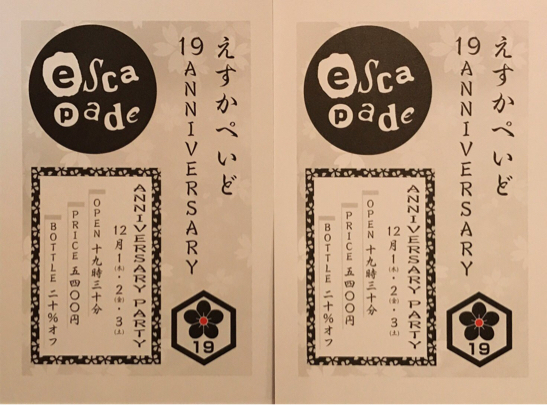 escapade
えすかぺいど
19 ANNIVERSARY
ANNIVERSARY PARTY
12月1(木)・2(金)・3(土)
OPEN 十九時三十分
PRICE 五四〇〇円
BOTTLE 二十%オフ
19
escapade
えすかぺいど
19 ANNIVERSARY
ANNIVERSARY PARTY
12月1(木)・2(金)・3(土)
OPEN 十九時三十分
PRICE 五四〇〇円
BOTTLE 二十%オフ
19